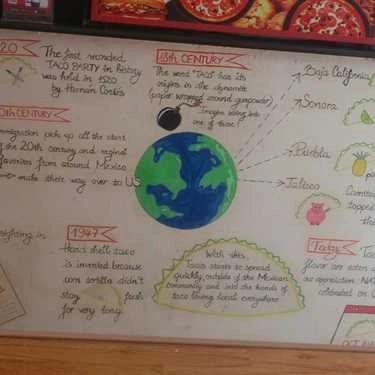 20
The first recorded
TACO PARTY in history
was held in 1520
by Hernán Cortés
18th CENTURY
The word "TACO" has its
origins in the dynamite
(paper wrapped around gunpowder)
Imagine biting into
one of those!
Baja California
Sonora
Puebla
Jalisco
0th CENTURY
mmigration pick up all the start
of the 20th century and regional
favorites from around Mexico
make their way over to US
1947
Hard shell taco
is invented because
corn tortilla didn't
stay fresh
for very long
With this,
Taco starts to spread
quickly outside of the Mexican
community and into the hands of
taco loving local everywhere
topped
Today
flavor are eaten
as appreciation, NAT
celebrated on
OCT